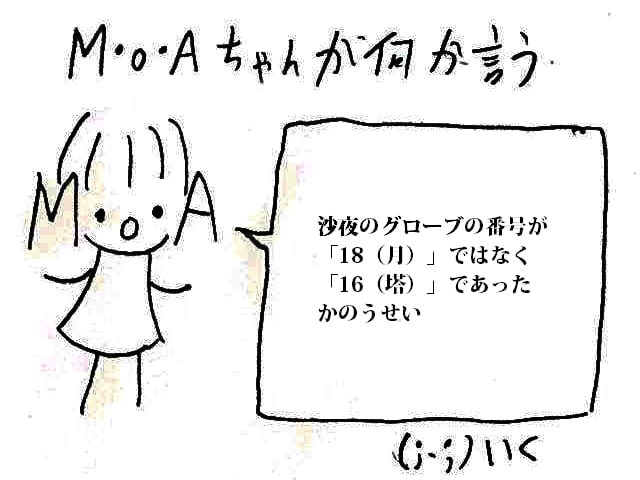 M・o・Aちゃんが何か言う.
M A
沙夜のグローブの番号が
「18（月）」ではなく
「16（塔）」であった
かのうせい
(;-;)いく